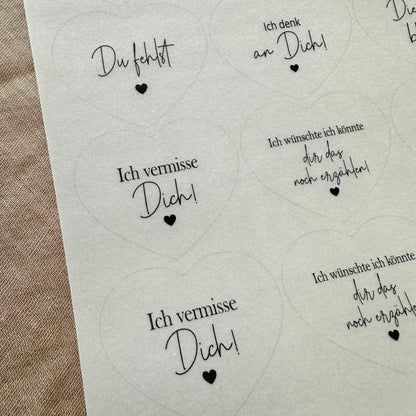 Du fehlst
Ich denk
an Dich!
Die
b
Ich vermisse
Dich!
Ich wünschte ich könnte
dir das
noch erzählen!
Ich vermisse
Dich!
Ich wünschte ich könnte
dir das
noch erzählen